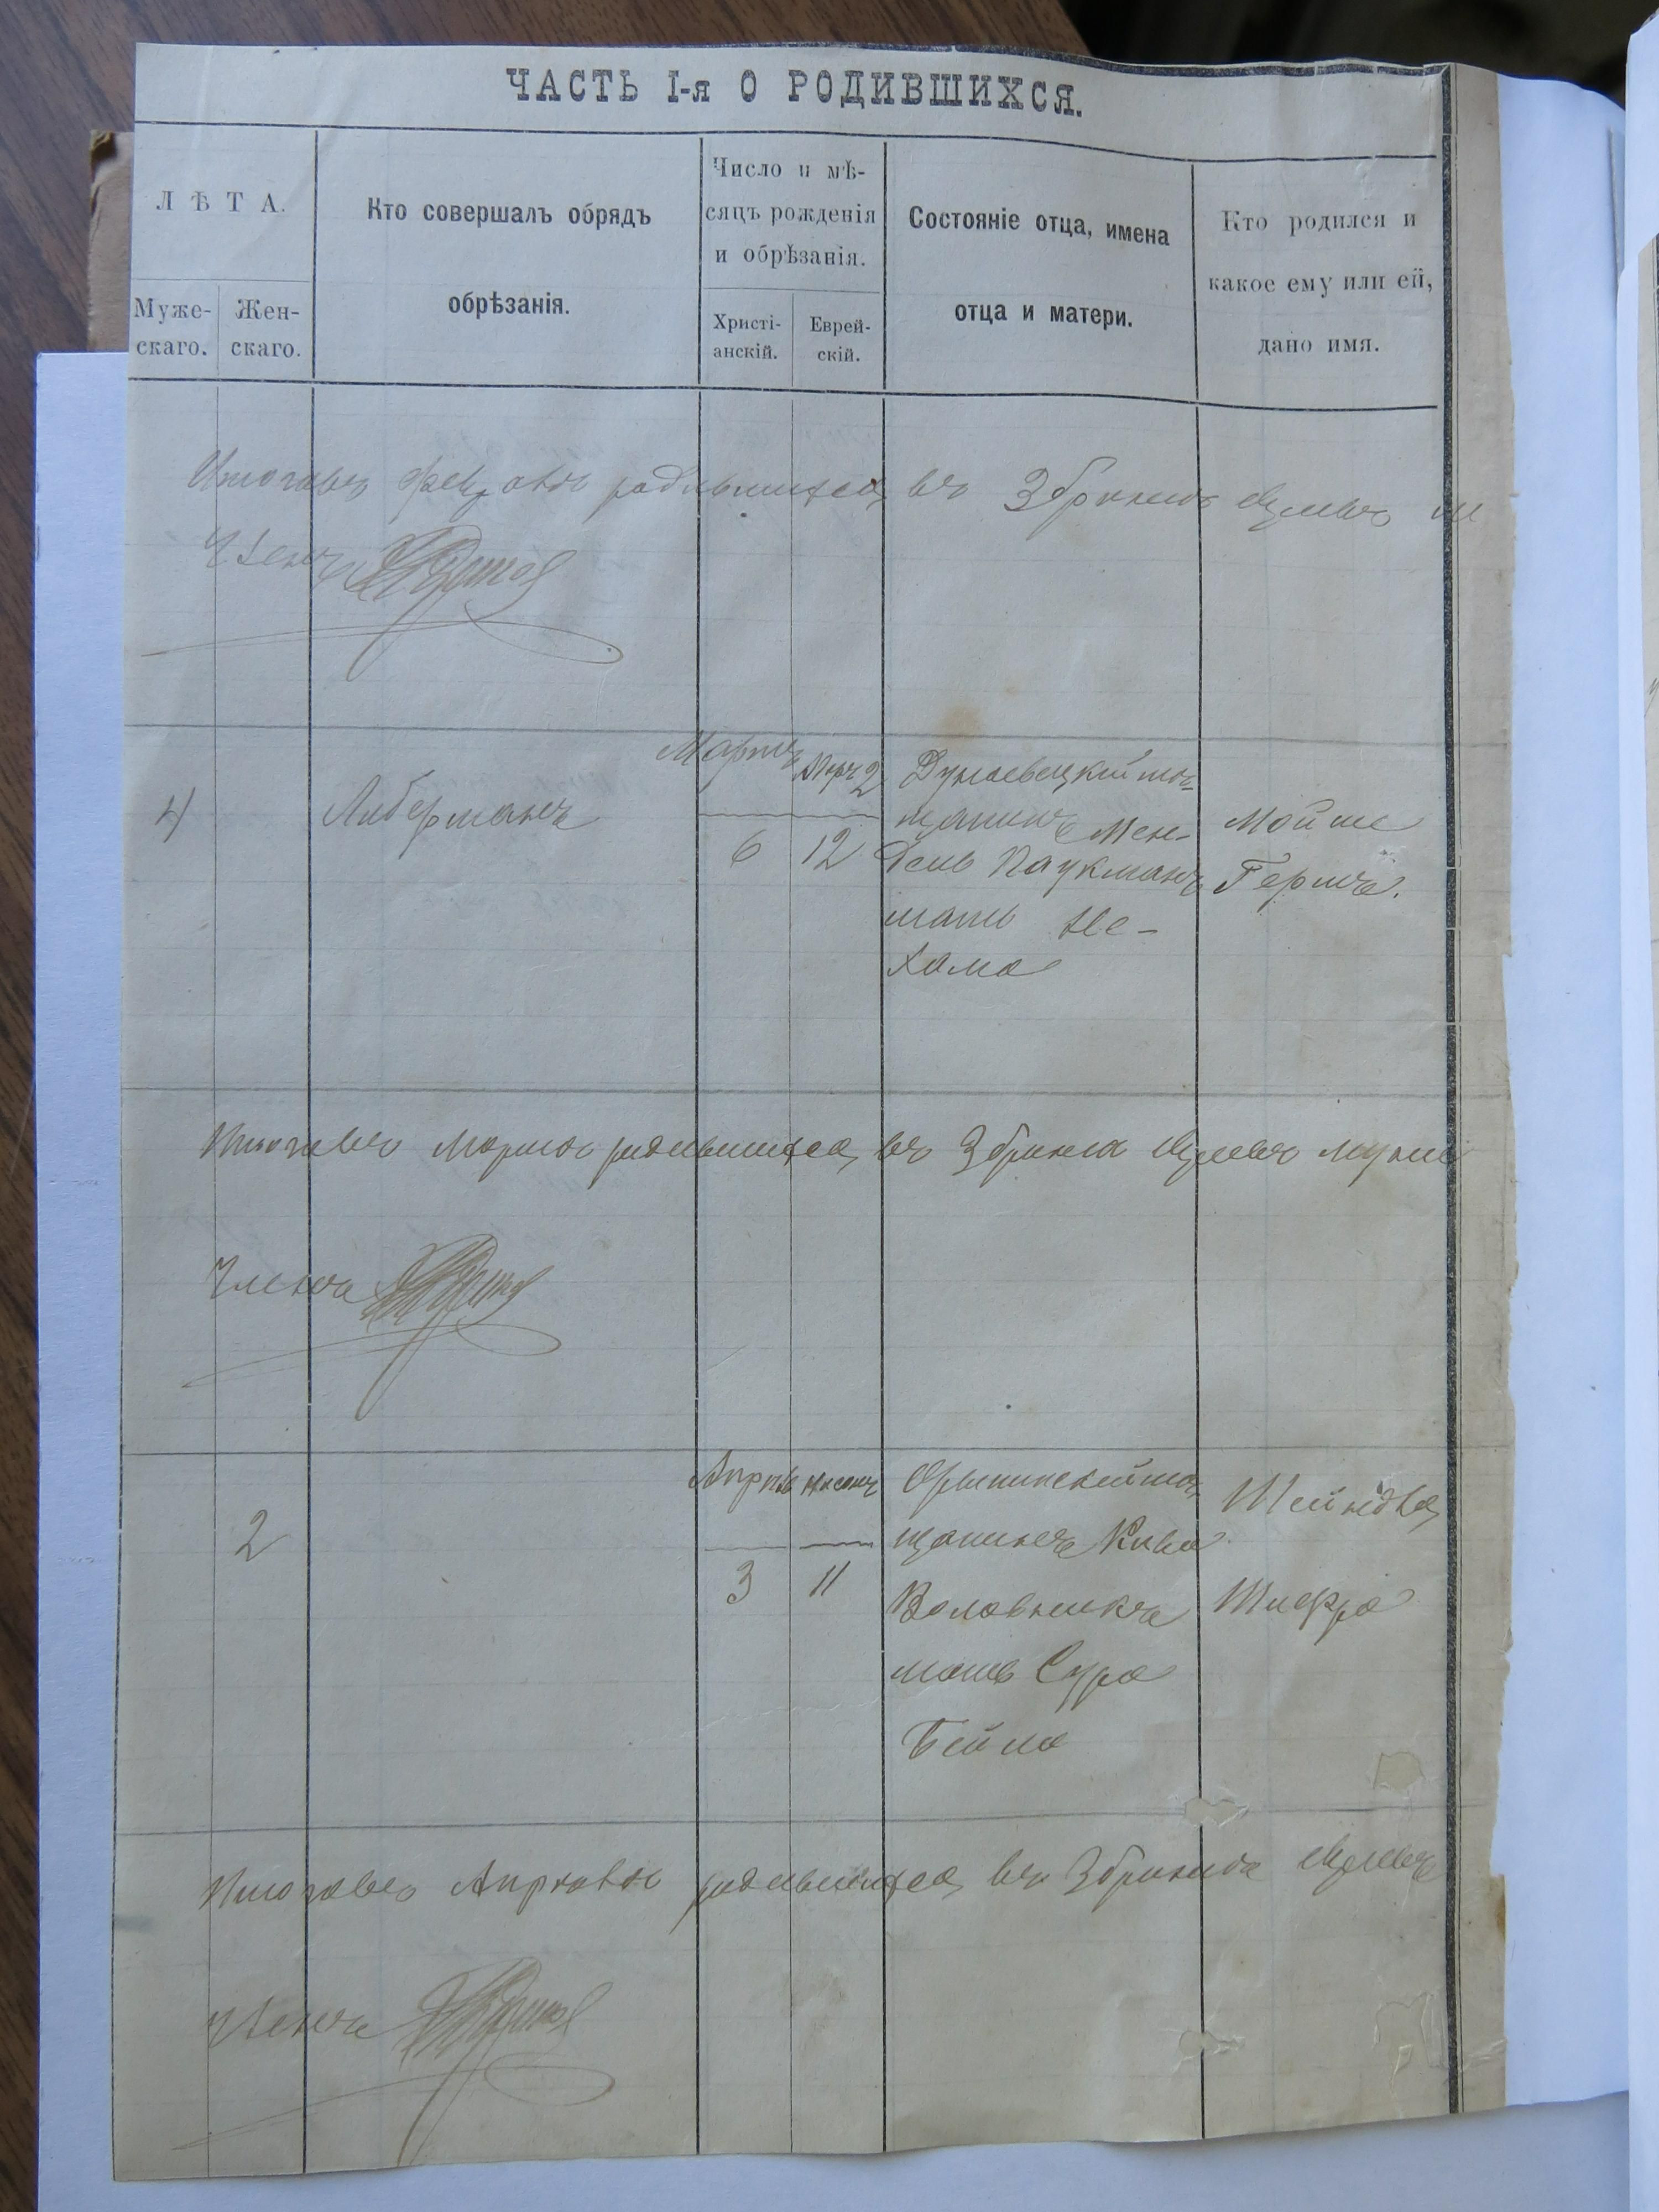 ЧАСТЬ I-я О РОДИВШИХСЯ.
ЛѢТА.
Муже-
скаго.
Жен-
скаго.
Кто совершалъ обрядъ
обрѣзанія.
Число и мѣ-
сяцъ рожденія
и обрѣзанія.
Христі-
анскій.
Еврей-
скій.
Состояніе отца, имена
отца и матери.
Кто родился и
какое ему или ей,
дано имя.
родившихся въ
Членъ
4
Либерманъ
Мартъ
6
2
12
Дунаевецкій мѣ-
щанинъ Мен-
дель Паукманъ
мать Не-
хама
Мойше
Гершъ.
Итого въ Мартѣ родившихся въ
Членъ
2
Апрѣль
3
Нисонъ
11
Орынинскій мѣ-
щанинъ Кива
Воловникъ
мать Сура
Бейла
Шейндля
Шифра
Итого въ родившихся въ
Членъ